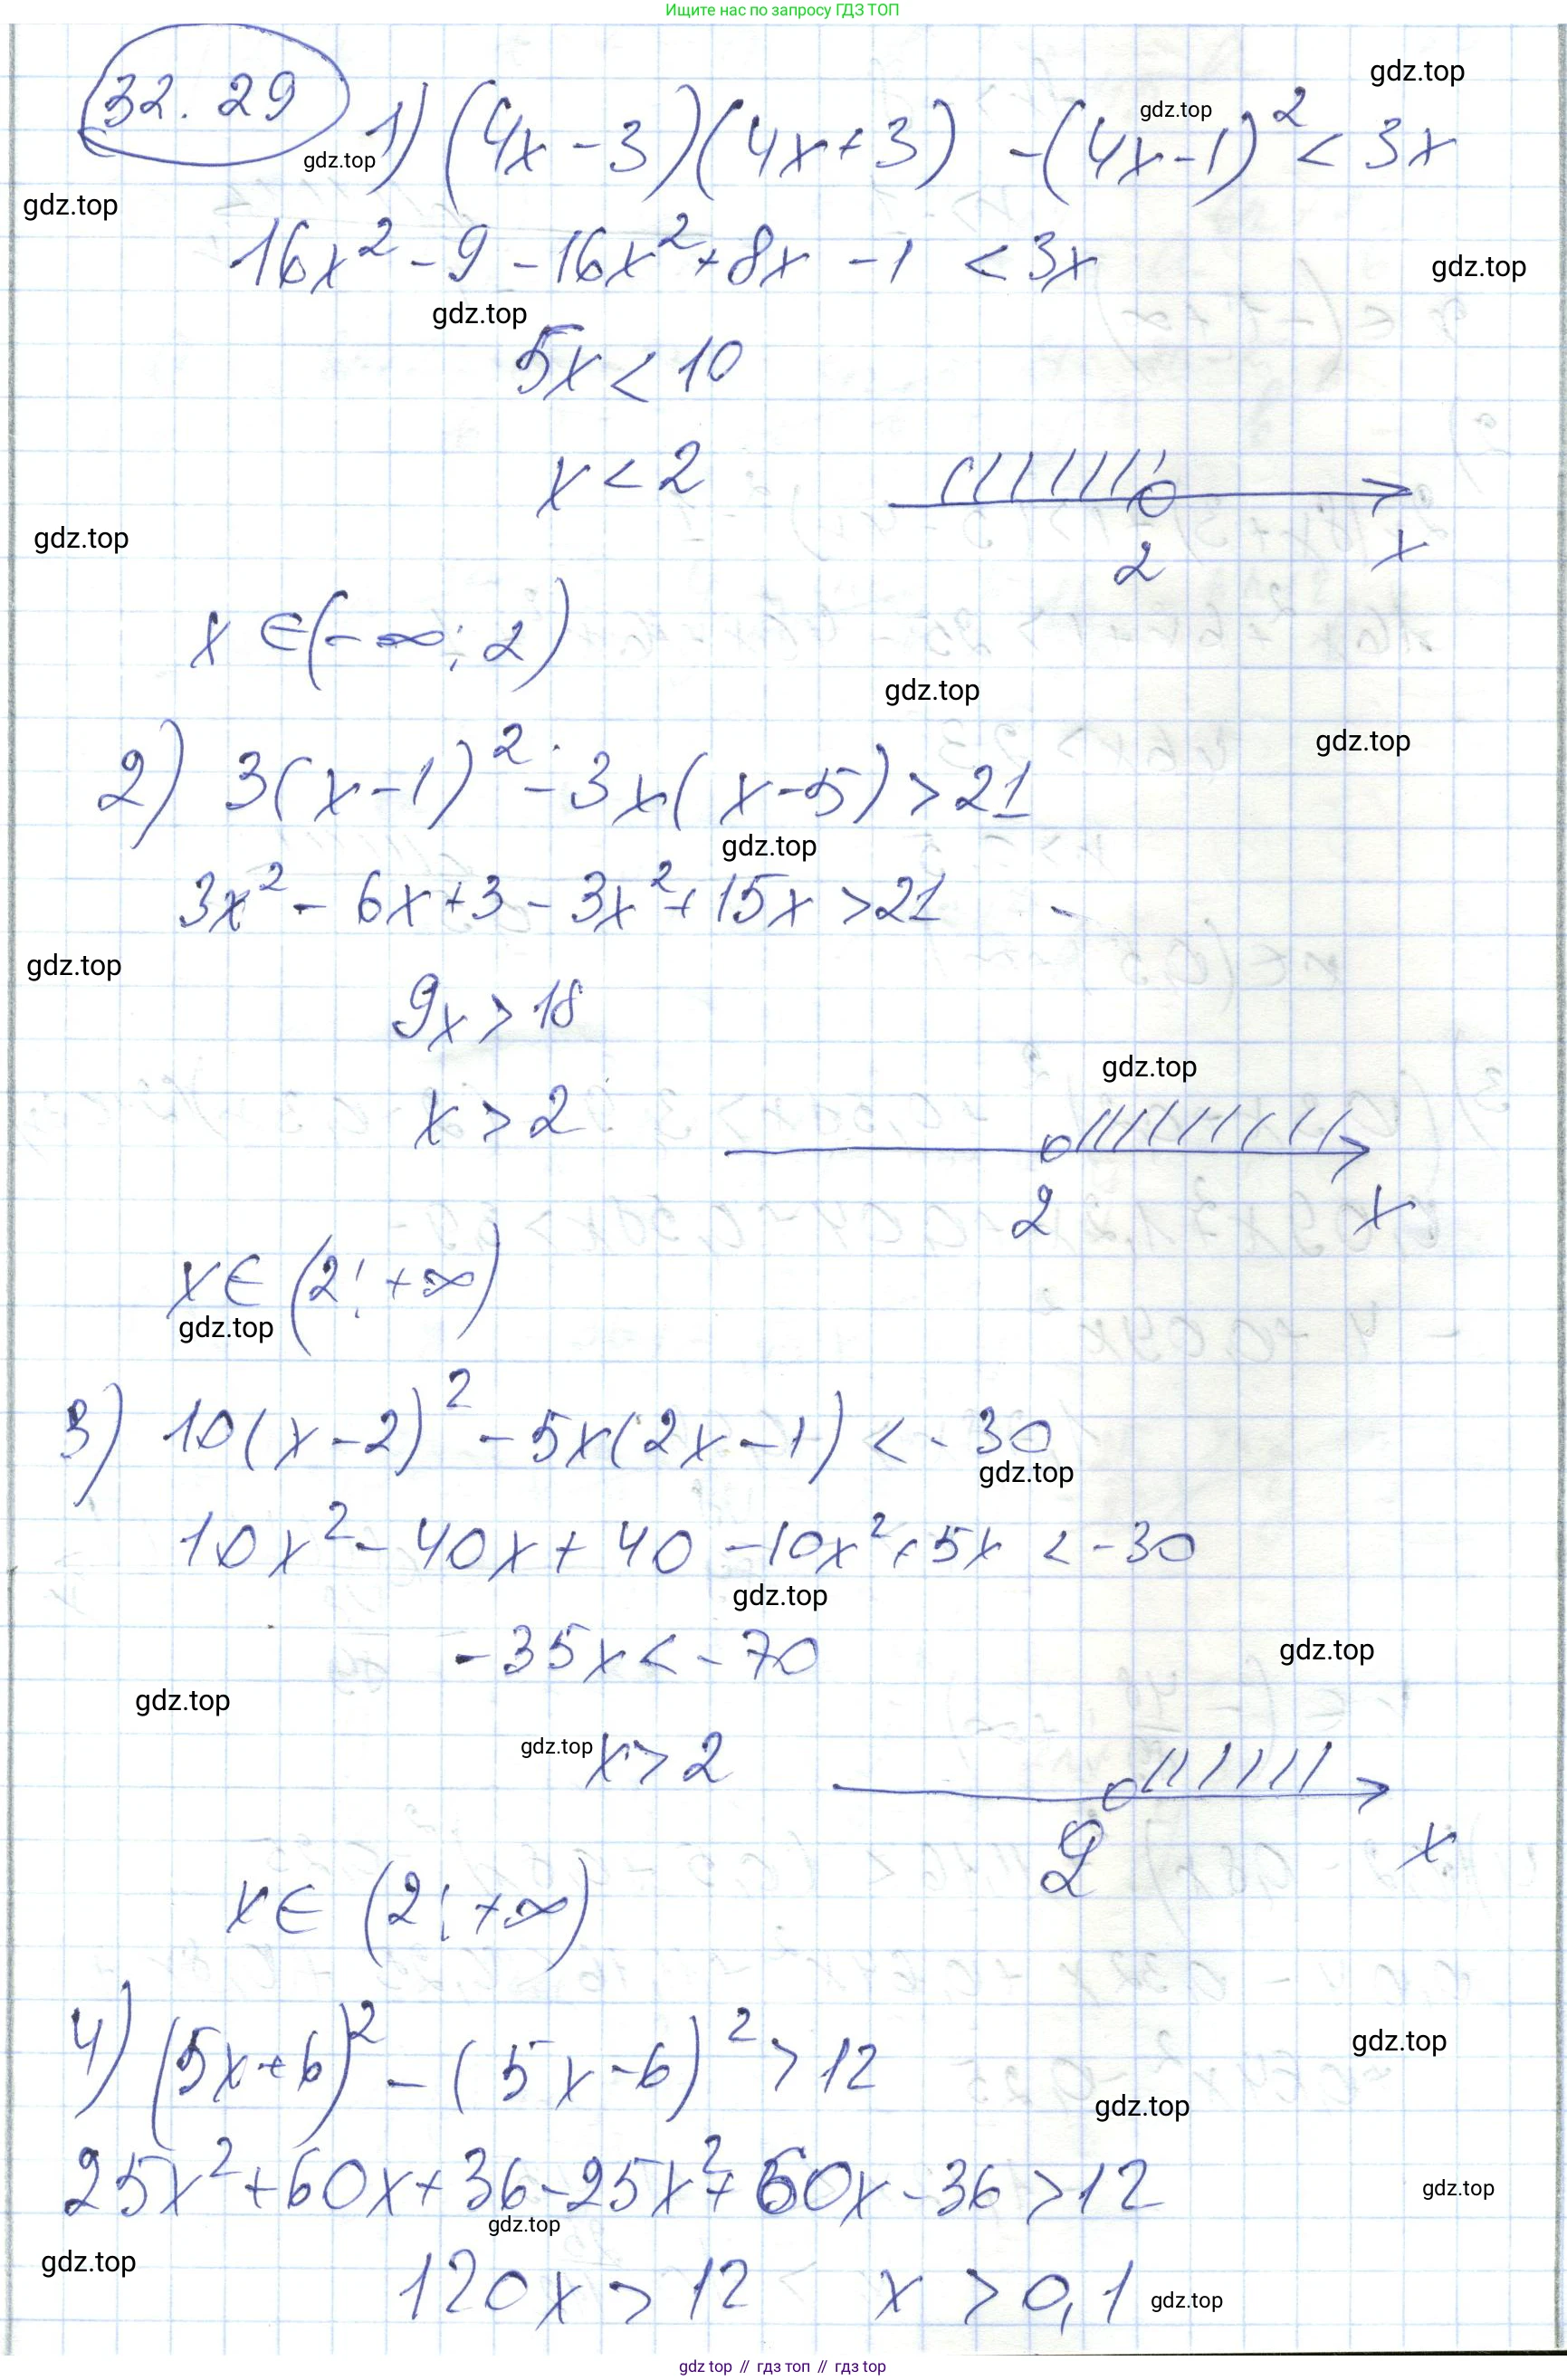 Ищите нас по запросу ГДЗ ТОП
gdz.top
32.29 1) (4x-3)(4x+3) -(4x-1)² < 3x
gdz.top
gdz.top
gdz.top
16x² - 9 - 16x² + 8x - 1 < 3x
gdz.top
gdz.top
5x < 10
x < 2
2 x
gdz.top
x ∈ (-∞; 2)
gdz.top
gdz.top
2) 3(x-1)² - 3x(x-5) > 21
gdz.top
3x² - 6x + 3 - 3x² + 15x > 21
gdz.top
9x > 18
gdz.top
x > 2
2 x
x ∈ (2; +∞)
gdz.top
3) 10(x-2)² - 5x(2x-1) < -30
gdz.top
10x² - 40x + 40 - 10x² + 5x < -30
gdz.top
-35x < -70
gdz.top
gdz.top
gdz.top x > 2
2 x
x ∈ (2; +∞)
4) (5x+6)² - (5x-6)² > 12
gdz.top
gdz.top
25x² + 60x + 36 - 25x² + 60x - 36 > 12
gdz.top
gdz.top
gdz.top
120x > 12 x > 0,1
gdz.top
gdz top // гдз топ // гдз top